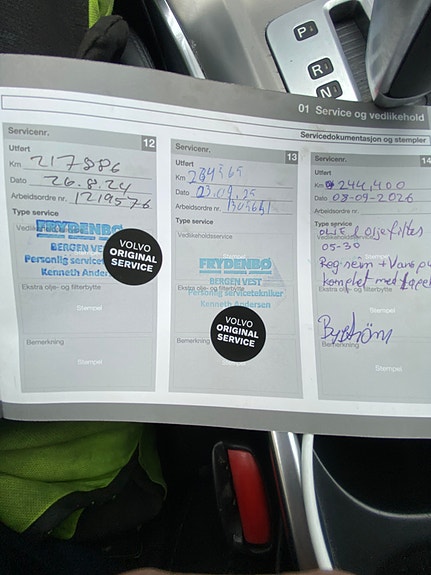 P
R
N
01 Service og vedlikehold
Servicedokumentasjon og stempler
Servicenr. 12
Utført
Km 217886
Dato 26.8.24
Arbeidsordre nr. 1219576
Type service
FRYDENBØ
BERGEN VEST
Personlig
Kenneth Ander
VOLVO
ORIGINAL
SERVICE
Ekstra olje- og filterbytte
Stempel
Bemerkning
Stempel
Servicenr. 13
Utført
Km 234565
Dato 23.09.25
Arbeidsordre nr.
Type service
Vedlikeholdsservice
Stempel
FRYDENBØ
BERGEN VEST
Personlig servicetekniker
Kenneth Andersen
Ekstra olje- og filterbytte
VOLVO
ORIGINAL
SERVICE
Bemerkning
Stempel
Servicenr. 14
Utført
Km 244.400
Dato 08-09-2026
Arbeidsordre nr.
Type service
olje & oljefilter
05-30
Reg reim + Vann
komplet med
Ekstra olje- og filterbytte
Stempel
Byström
Bemerkning
Stempel